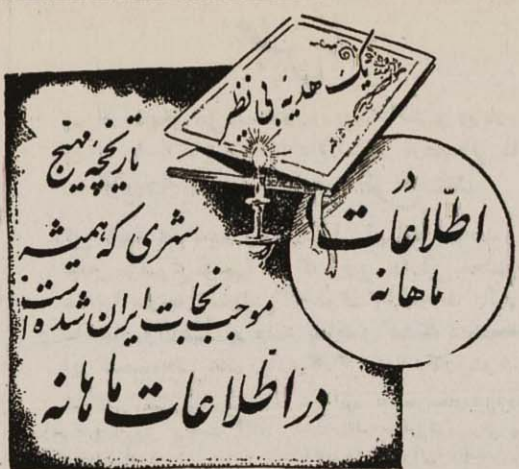 یک هدیه بی نظیر
در
اطلاعات
ماهانه
تاریخچه مهیج
شهری که همیشه
موجب نجات ایران شده است
در اطلاعات ماهانه